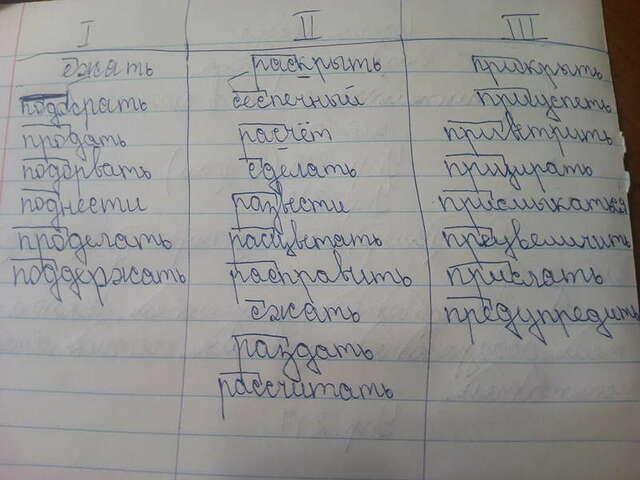 I
сжать
подобрать
продать
подорвать
поднести
проделать
поддержать
II
раскрыть
беспечный
расчёт
сделать
развести
расцветать
расправить
сжать
раздать
рассчитать
III
прикрыть
приуспеть
призирать
присмыкаться
преувеличить
прислать
предупредить